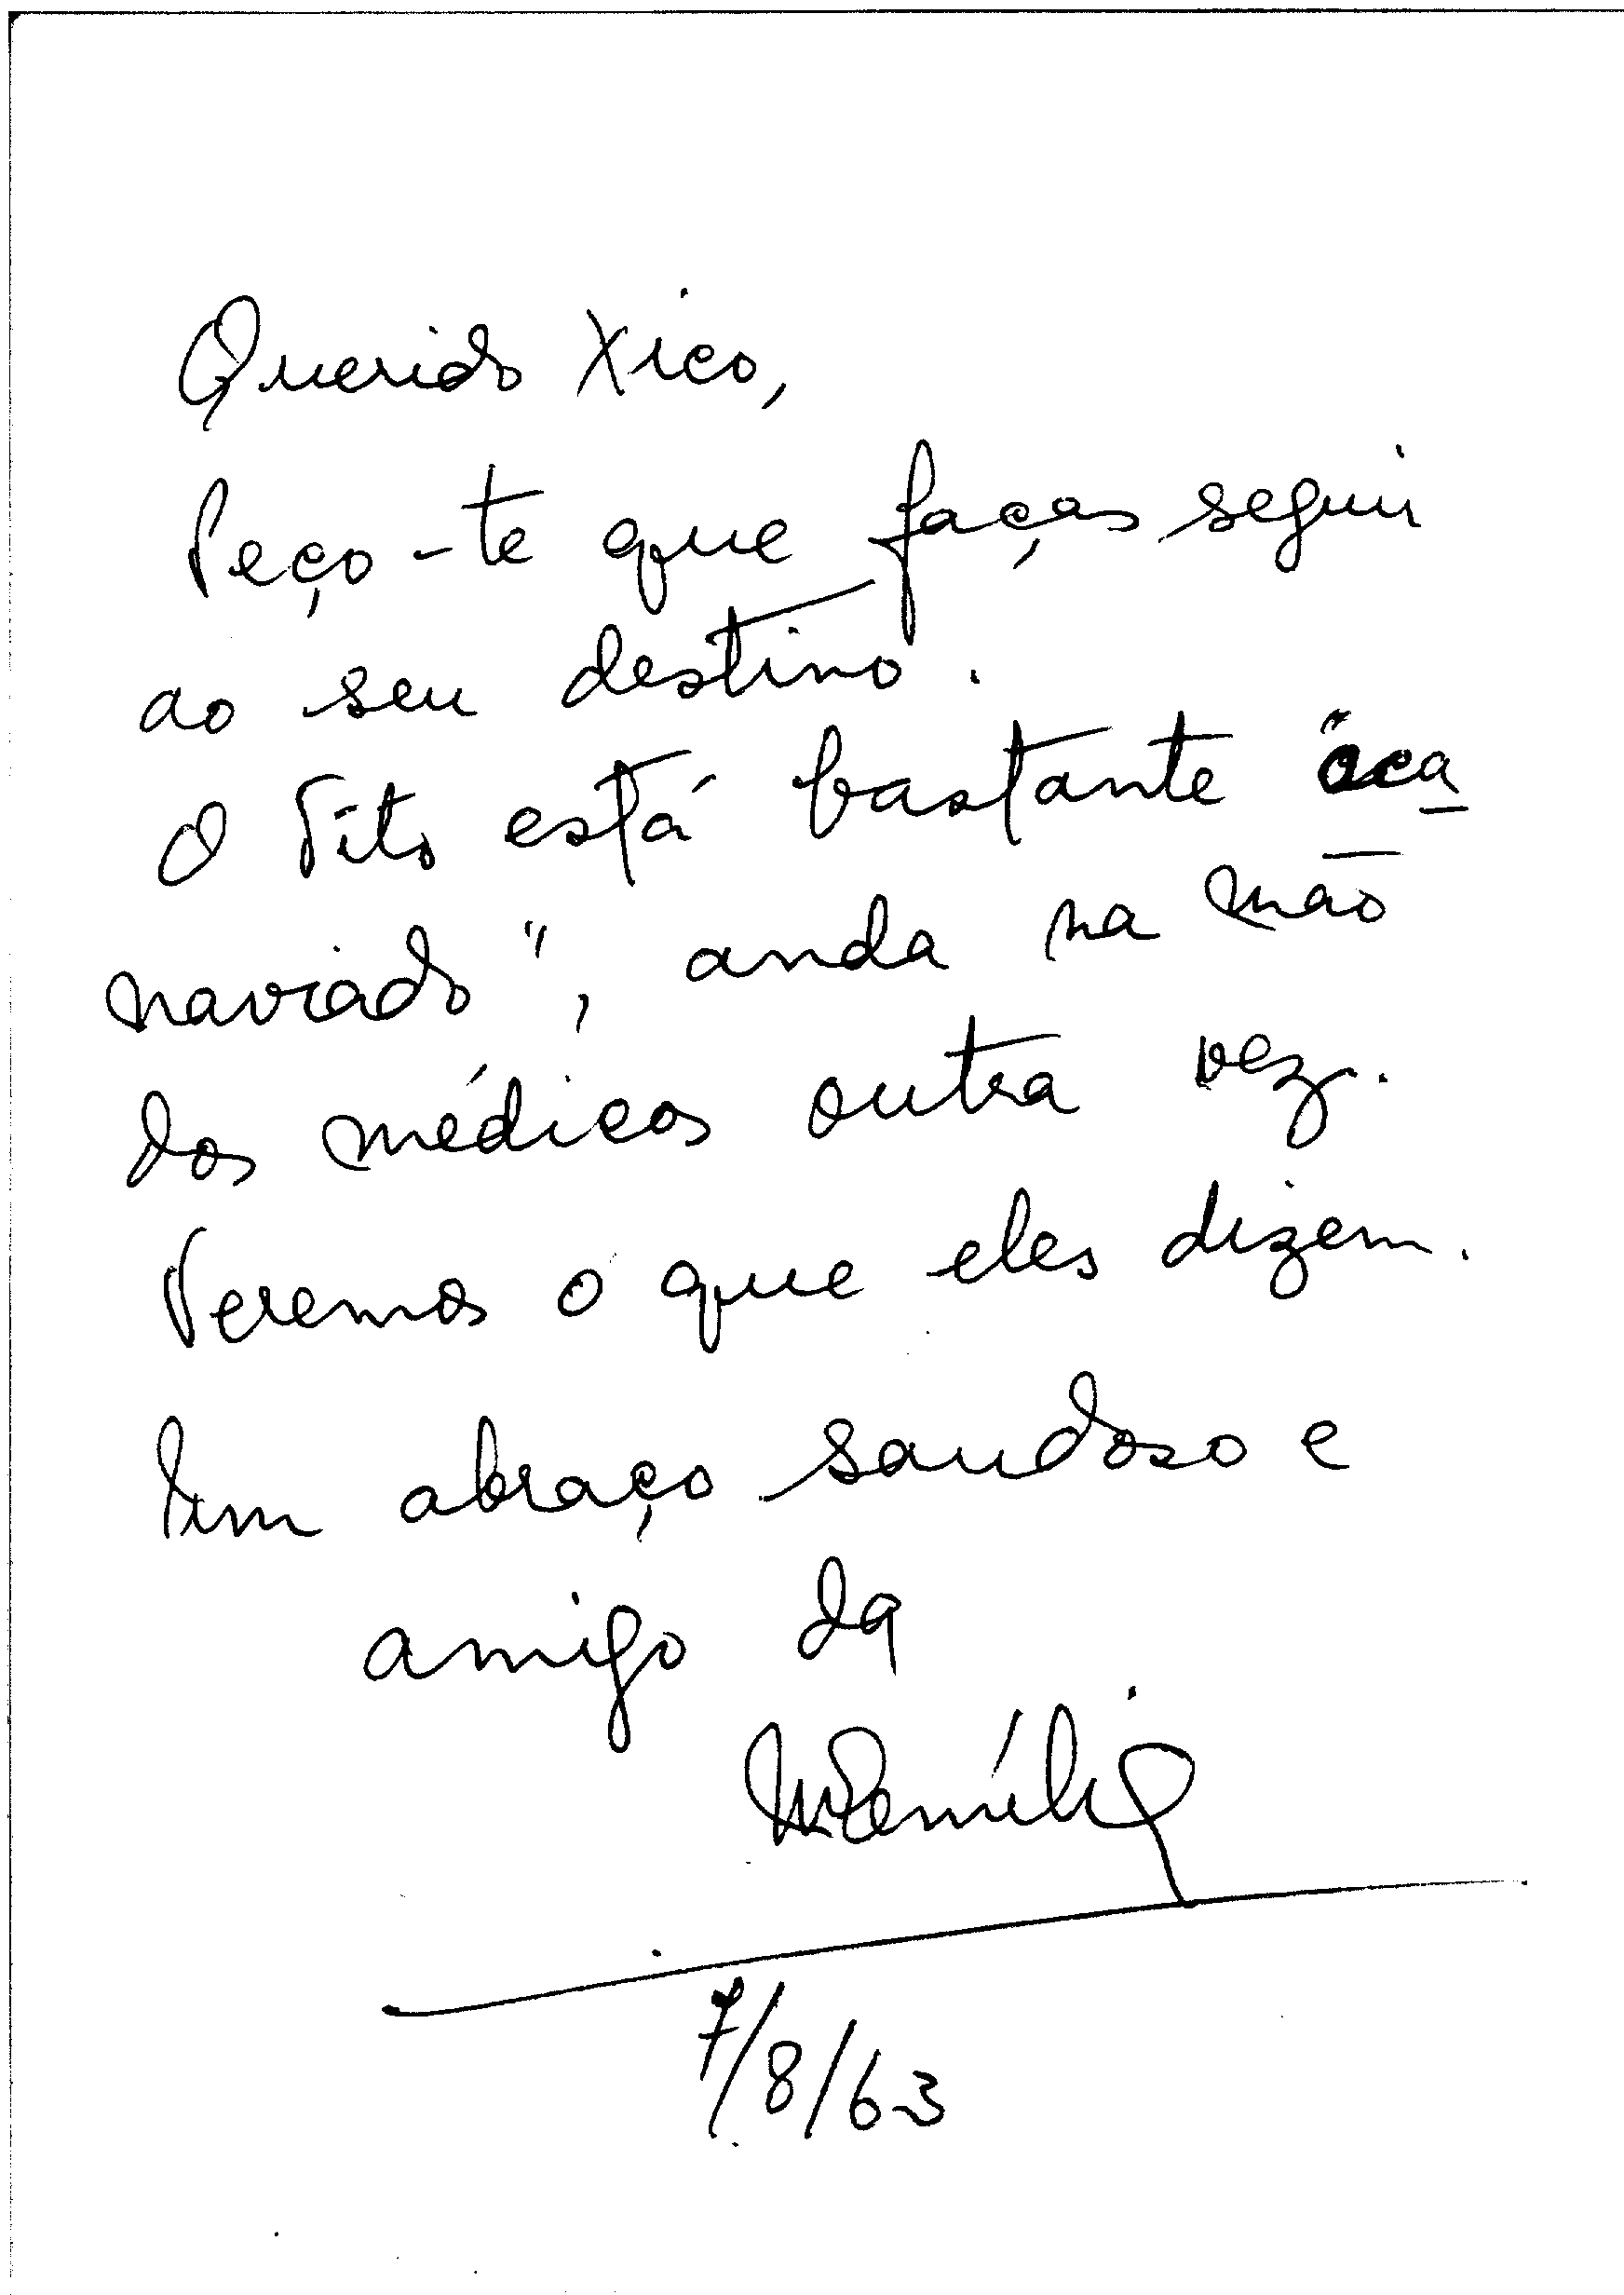 Querido Xico,
Peço-te que faças seguir
ao seu destino.
O Vito está bastante "aca_
naviado", anda na mão
dos médicos outra vez.
Veremos o que eles dizem.
Um abraço saudoso e
amigo da
MEmília
7/8/63